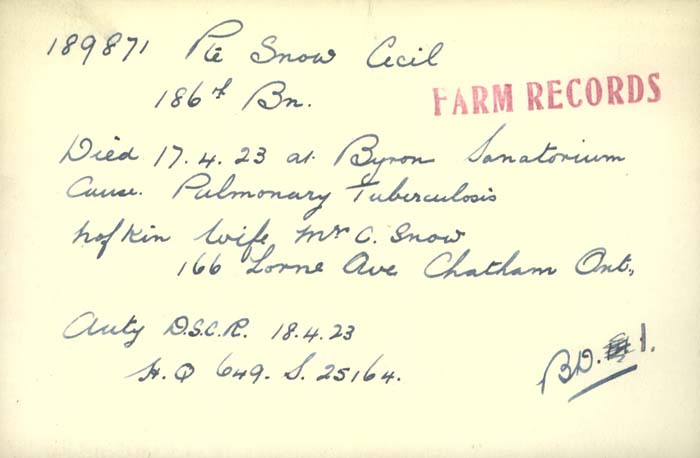 189871 Pte Snow Cecil
186th Bn.
FARM RECORDS
Died 17.4.23 at Byron Sanatorium
Cause. Pulmonary Tuberculosis
n of kin Wife Mrs C. Snow
166 Lorne Ave Chatham Ont.,
Auty D.S.C.R. 18.4.23
H.Q 649. S. 25164.
B.D. 1.